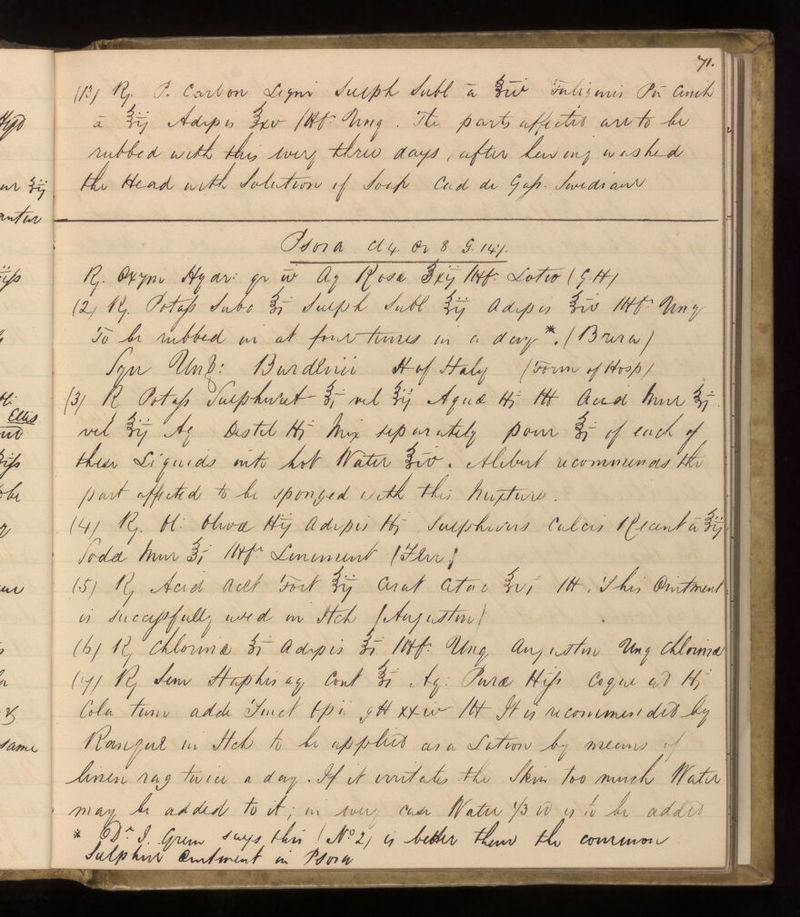 71.
(13) ℞. P. Carbon Ligni Sulph Subl ā ℥iv Fuliginis Pū Cinch
ā ℥ij Adipis ℥xv Mft Ung. The parts affected are to be
rubbed with this every three days, after having washed
the Head with Solution of Soap Cad de Gass. Swediaur
Psora Cl 4. Or 8 G. 147.
℞. Oxym Hydr: gr iv Aq Rosa ℥xij Mft. Lotio (GH)
(2) ℞. Potass Subc ℥j Sulph Subl ℥ij Adipis ℥iv Mft Ung
To be rubbed in at four times in a day*. (Brera)
Syn Ung: Burdlini H of Italy (Form of Hosp)
(3) ℞ Potass Sulphuret ℥j vel ℥ij Aquæ ℔j M Acid Mur ℥j
vel ℥ij Aq Distil ℔j Mix separately pour ℥j of each of
these Liquids into hot Water ℥iv. Alibert recommends the
part affected to be sponged with this Mixture.
(4) ℞. Ol: Oliva ℔ij Adipis ℔j Sulphuris Calcis Recent ā ℥ij
Soda Mur ℥j Mft Liniment
(5) ℞ Acid Acet Fort ℥ij ℥vj M. This Ointment
is successfully used in Itch (Augustin)
(6) ℞ Chlorina ℥j Adipis ℥j Mft: Ung Augustin Ung Chlorina
(7) ℞ Sem Staphisag Cont ℥j Aq: Puræ ℔iss Coque ad ℔j
Cola tum adde Tinct Opii gtt xxiv M It is recommended by
Ranque in Itch to be applied as a Lotion by means of
linen rag twice a day. If it irritates the Skin too much Water
may be added to it; in every case Water is to be added
* Dr. J. Green says this (No 2) is better than the common
Sulphur Ointment in Psora
Ellis
same